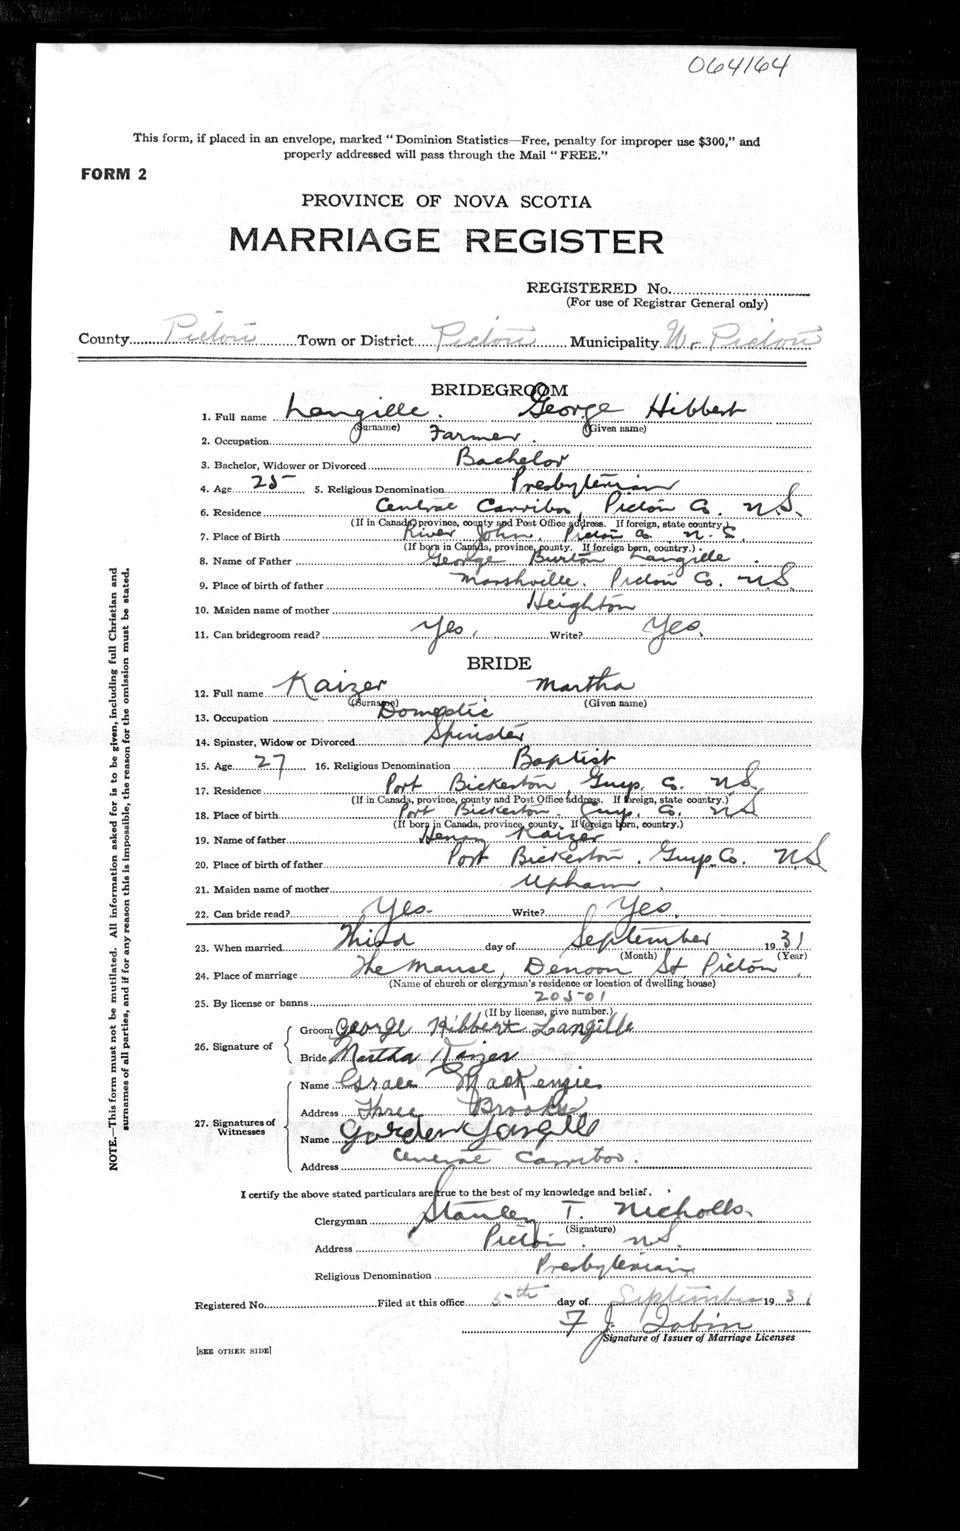 064164
This form, if placed in an envelope, marked "Dominion Statistics—Free, penalty for improper use $300," and
properly addressed will pass through the Mail "FREE."
FORM 2
PROVINCE OF NOVA SCOTIA
MARRIAGE REGISTER
REGISTERED No.
(For use of Registrar General only)
County Pictou Town or District Pictou Municipality W. Pictou
BRIDEGROOM
1. Full name Langille. George Hibbert
(Surname) (Given name)
2. Occupation Farmer.
3. Bachelor, Widower or Divorced Bachelor
4. Age 25 5. Religious Denomination Presbyterian
6. Residence Central Caribou, Pictou Co. N.S.
(If in Canada, province, county and Post Office address. If foreign, state country.)
7. Place of Birth River John. Pictou Co. N.S.
(If born in Canada, province, county. If foreign born, country.)
8. Name of Father George Burton Langille.
9. Place of birth of father Marshville. Pictou Co. N.S.
10. Maiden name of mother Heighton
11. Can bridegroom read? Yes. Write? Yes.
BRIDE
12. Full name Kaizer Martha
(Surname) (Given name)
13. Occupation Domestic
14. Spinster, Widow or Divorced Spinster
15. Age 27 16. Religious Denomination Baptist
17. Residence Port Bickerton Guys. Co. N.S.
(If in Canada, province, county and Post Office address. If foreign, state country.)
18. Place of birth Port Bickerton. Guys. Co. N.S.
(If born in Canada, province, county. If foreign born, country.)
19. Name of father Henry Kaizer
20. Place of birth of father Port Bickerton. Guys. Co. N.S.
21. Maiden name of mother Upham
22. Can bride read? Yes. Write? Yes.
23. When married Third day of September 1931
(Month) (Year)
24. Place of marriage The Manse, Denoon St Pictou
(Name of church or clergyman's residence or location of dwelling house)
25. By license or banns 20501
(If by license, give number.)
26. Signature of
Groom George Hibbert Langille
Bride Martha Kaizer
27. Signatures of Witnesses
Name Grace MacKenzie
Address Three Brooks
Name Gorden Langille
Address Central Carribou.
I certify the above stated particulars are true to the best of my knowledge and belief.
Clergyman Stanley T. Nicholls.
(Signature)
Address Pictou. N.S.
Religious Denomination Presbyterian
Registered No. Filed at this office 5th day of September 1931
F J. Tobin
Signature of Issuer of Marriage Licenses
[SEE OTHER SIDE]
NOTE.—This form must not be mutilated. All information asked for is to be given, including full Christian and
surnames of all parties, and if for any reason this is impossible, the reason for the omission must be stated.